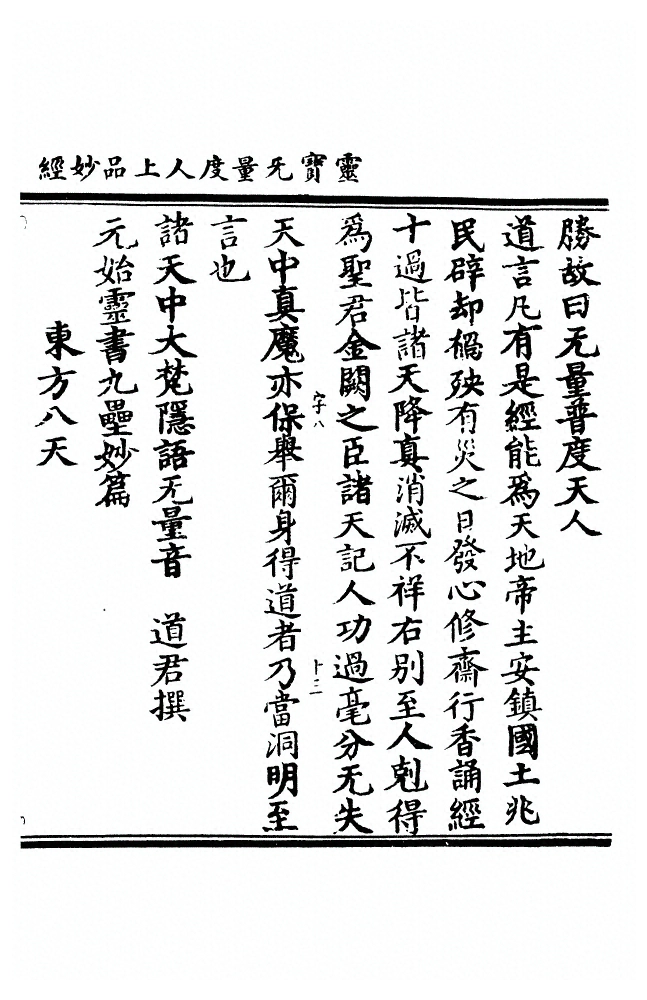 靈寶无量度人上品妙經
勝故曰无量普度天人
道言凡有是經能爲天地帝主安鎮國土兆
民辟却禍殃有災之日發心修齋行香誦經
十過皆諸天降真消滅不祥右别至人剋得
爲聖君金闕之臣諸天記人功過毫分无失
字八
十三
天中真魔亦保舉爾身得道者乃當洞明至
言也
諸天中大梵隱語无量音　道君撰
元始靈書九壘妙篇
東方八天